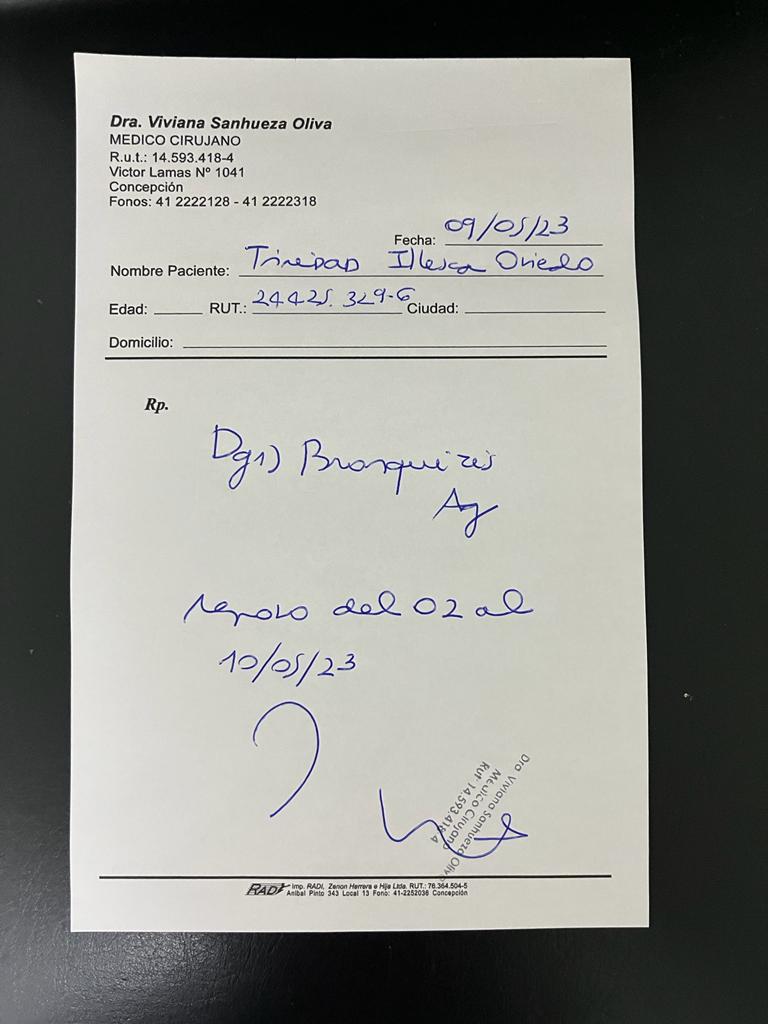 Dra. Viviana Sanhueza Oliva
MEDICO CIRUJANO
R.u.t.: 14.593.418-4
Victor Lamas Nº 1041
Concepción
Fonos: 41 2222128 - 41 2222318
Fecha: 09/05/23
Nombre Paciente: Trinidad Illesca Oviedo
Edad: RUT.: 24425.329-6 Ciudad:
Domicilio:
Rp.
Dg1) Bronquitis
Ag
reposo del 02 al
10/05/23
Dra. Viviana Sanhueza Oliva
Medico Cirujano
Rut: 14.593.418-4
RADI Imp. RADI, Zenon Herrera e Hija Ltda. RUT.: 76.364.504-5
Anibal Pinto 343 Local 13 Fono: 41-2252036 Concepción